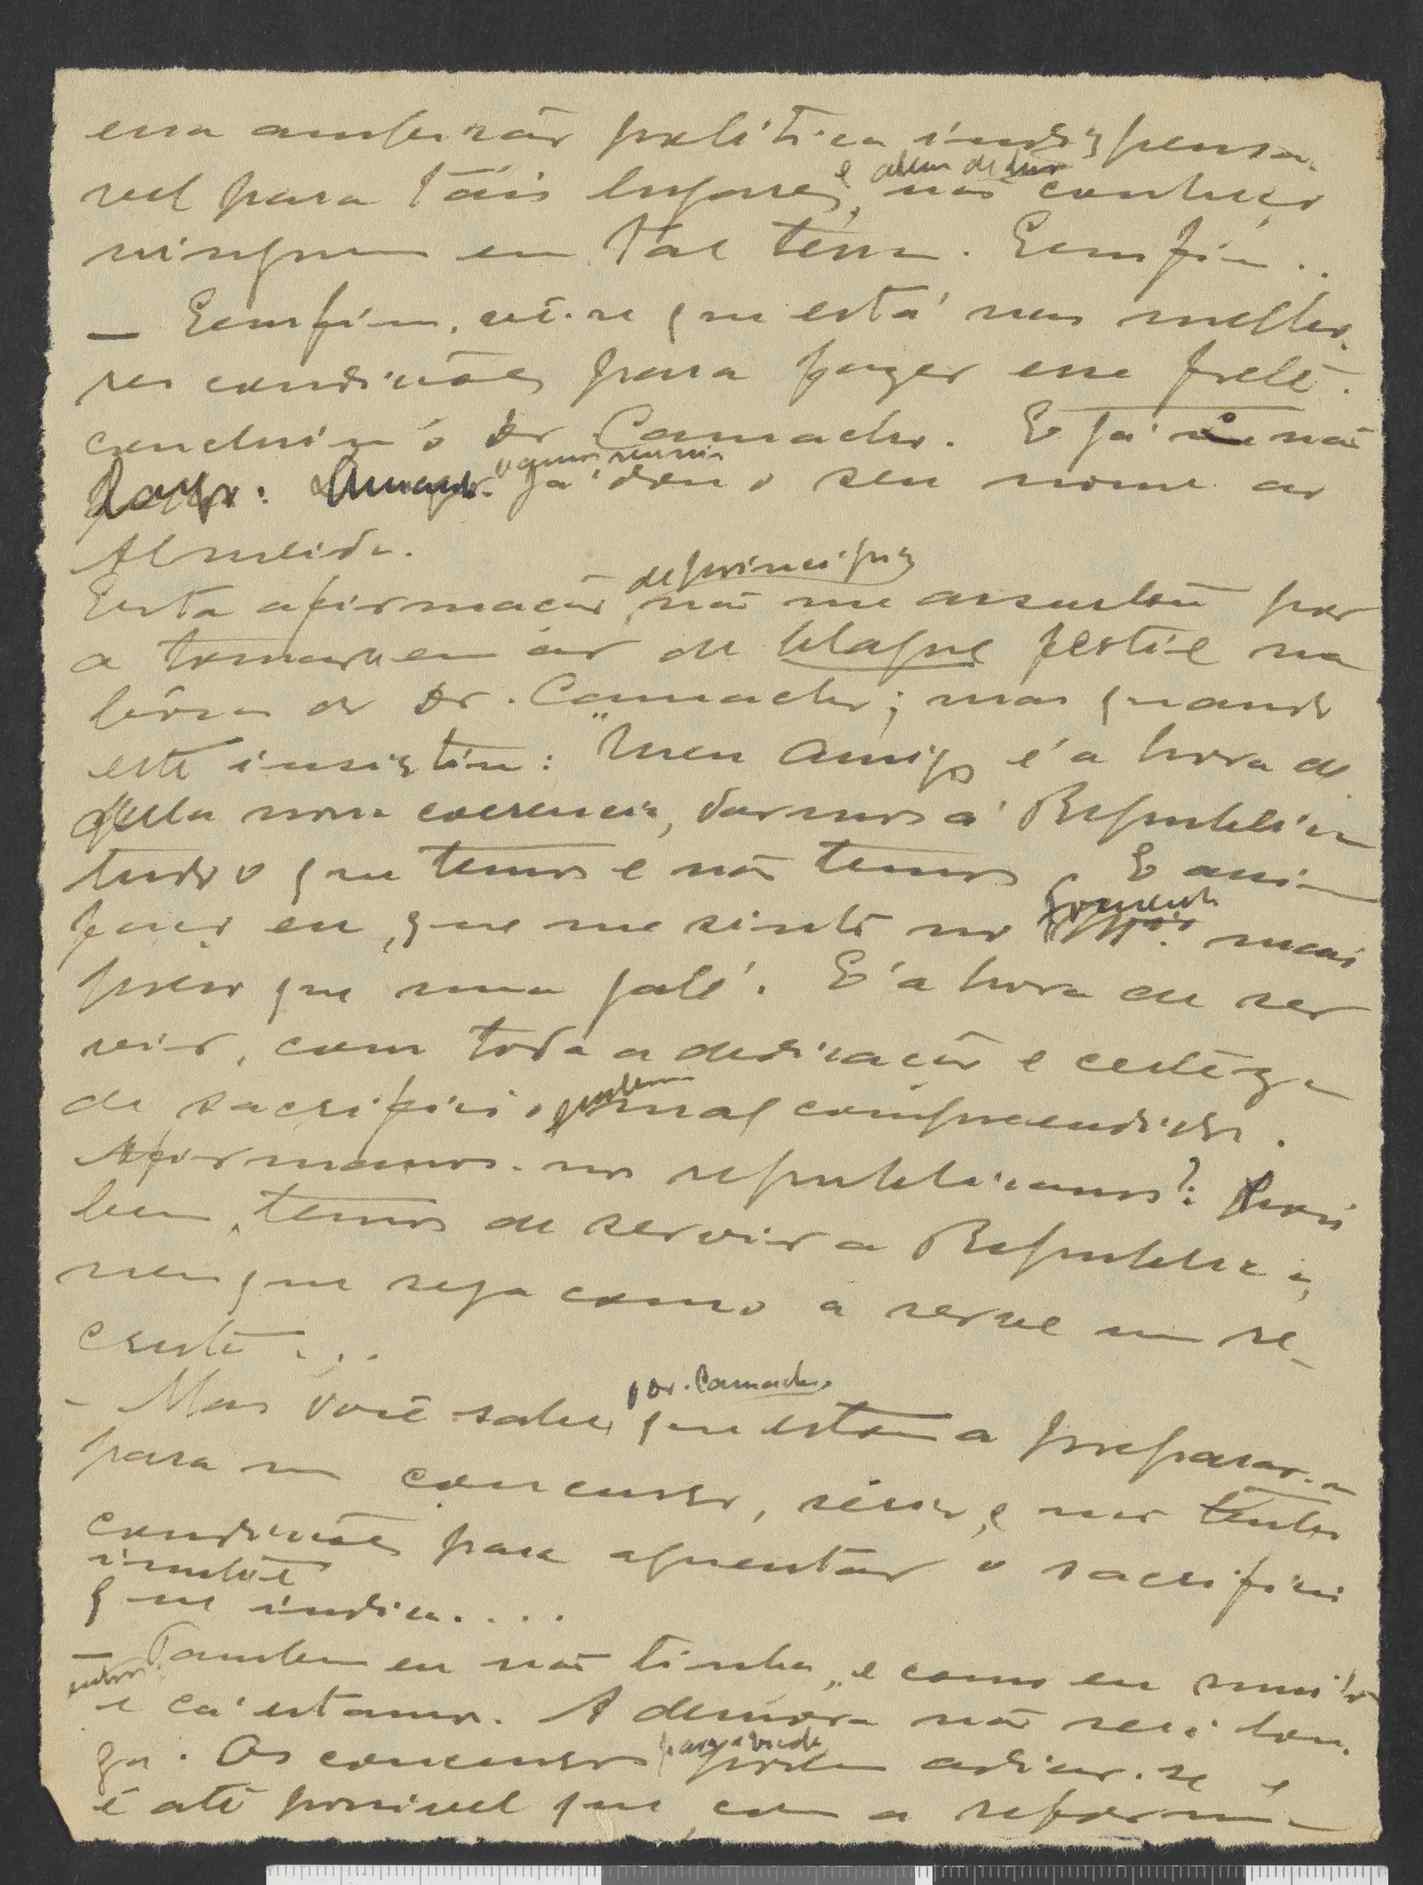 essa ambição politica indispensa-
vel para táis lugares, e alem de isso não conheço
ninguem em tal terra. Eemfim..
— Eemfim, vê-se que está nas melho-
res condições para fazer esse frete.
concluiu o Dr. Camacho. E já não
já dou o seu nome ao
Almeida.
Esta afirmação, de principio, não me assustou por
a tomar em ar de blague fertil na
bôca do Dr. Camacho; mas quando
este insistiu: "Meu amigo é a hora de
pela nossa coerencia, darmos á Republica
tudo o que temos e não temos. E assim
faço eu, que me sinto no mais
preso que uma galé. E' a hora de ser
vir, com toda a dedicação e certeza
de sacrificio, mal compreendidos.
Afirmamo-nos republicanos? Pois
bem, temos de servir a Republica,
nem que seja como a serve um re-
cruta...
- Mas você sabe, Dr. Camacho, que estou a preparar-me
para um concurso, sério, e não tenho
condições para aguentar o sacrificio
que indica....
— Tambem eu não tinha, e como eu muitos
e cá estamos. A demora não será lon-
ga. Os concursos podem adiar-se e
é até possivel que, com a reforma